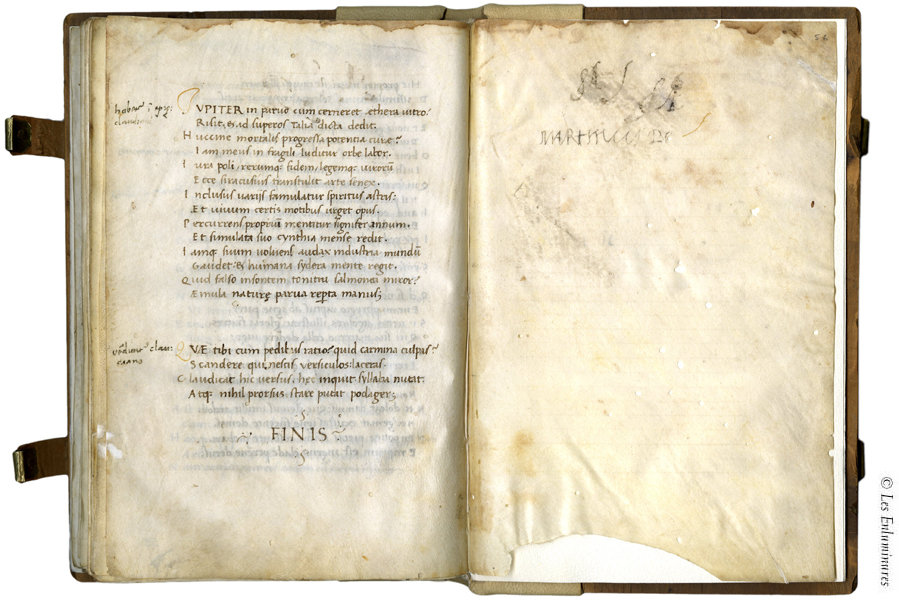 IVPITER in paruo cum cerneret æthera uitro:
Risit, & ad superos talia dicta dedit.
Huccine mortalis progressa potentia curæ?
Iam meus in fragili luditur orbe labor.
Iura poli, rerumq; fidem, legemq; uirorũ
Ecce siracusius transtulit arte senex.
Inclusus uariis famulatur spiritus astris:
Æt uiuum certis motibus urget opus.
Percurrens propriũ mentitur signifer annum.
Et simulata suo cynthia mẽse redit.
Iamq; suum voluens audax industria mundũ
Gaudet & humana sydera mente regit.
Quid falso insontem tonitru salmonea miror?
Æmula naturę parua reperta manus;
QVÆ tibi cum pedibus ratio? quid carmina culpas?
Scandere qui nescis versiculos laceras.
Claudicat hic versus, hęc inquit syllaba nutat:
Atq; nihil prorsus stare putat podager;
FINIS
56
© Les Enluminures